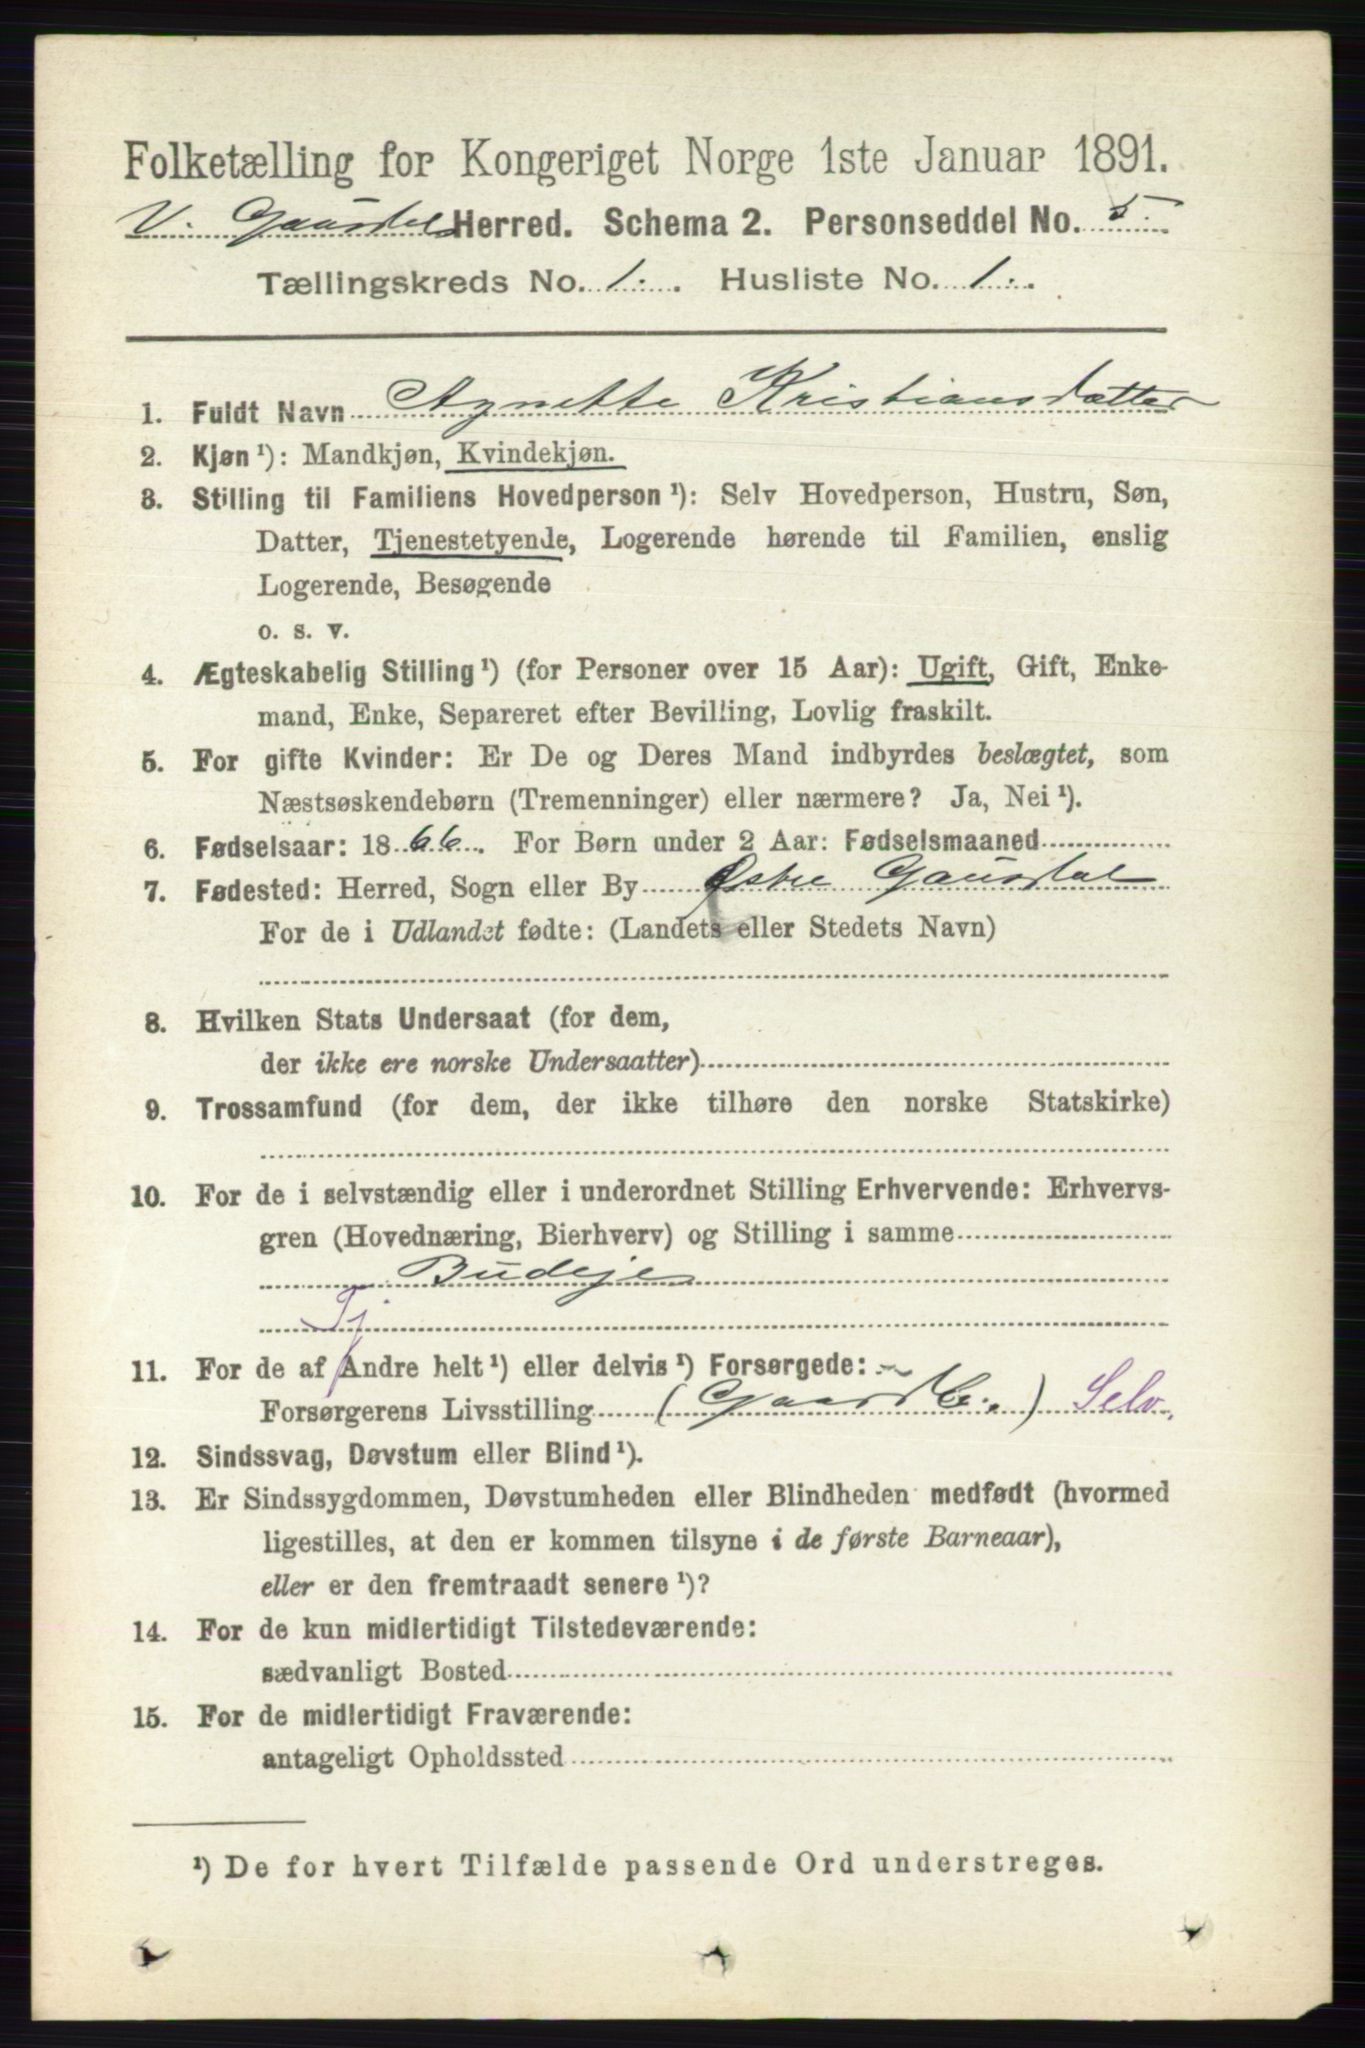 Folketælling for Kongeriget Norge 1ste Januar 1891.
V. Gausdal Herred. Schema 2. Personseddel No. 5.
Tællingskreds No. 1. Husliste No. 1.
1. Fuldt Navn Agnette Kristiansdatter
2. Kjøn¹): Mandkjøn, Kvindekjøn.
3. Stilling til Familiens Hovedperson¹): Selv Hovedperson, Hustru, Søn,
Datter, Tjenestetyende, Logerende hørende til Familien, enslig
Logerende, Besøgende
o. s. v.
4. Ægteskabelig Stilling¹) (for Personer over 15 Aar): Ugift, Gift, Enke-
mand, Enke, Separeret efter Bevilling, Lovlig fraskilt.
5. For gifte Kvinder: Er De og Deres Mand indbyrdes beslægtet, som
Næstsøskendebørn (Tremenninger) eller nærmere? Ja, Nei¹).
6. Fødselsaar: 1866. For Børn under 2 Aar: Fødselsmaaned
7. Fødested: Herred, Sogn eller By Østre Gausdal
For de i Udlandet fødte: (Landets eller Stedets Navn)
8. Hvilken Stats Undersaat (for dem,
der ikke ere norske Undersaatter)
9. Trossamfund (for dem, der ikke tilhøre den norske Statskirke)
10. For de i selvstændig eller i underordnet Stilling Erhvervende: Erhvervs-
gren (Hovednæring, Bierhverv) og Stilling i samme
Budeje
Tj
11. For de af Andre helt¹) eller delvis¹) Forsørgede:
Forsørgerens Livsstilling (Gaardb.) Selv.
12. Sindssvag, Døvstum eller Blind¹).
13. Er Sindssygdommen, Døvstumheden eller Blindheden medfødt (hvormed
ligestilles, at den er kommen tilsyne i de første Barneaar),
eller er den fremtraadt senere¹)?
14. For de kun midlertidigt Tilstedeværende:
sædvanligt Bosted
15. For de midlertidigt Fraværende:
antageligt Opholdssted
¹) De for hvert Tilfælde passende Ord understreges.